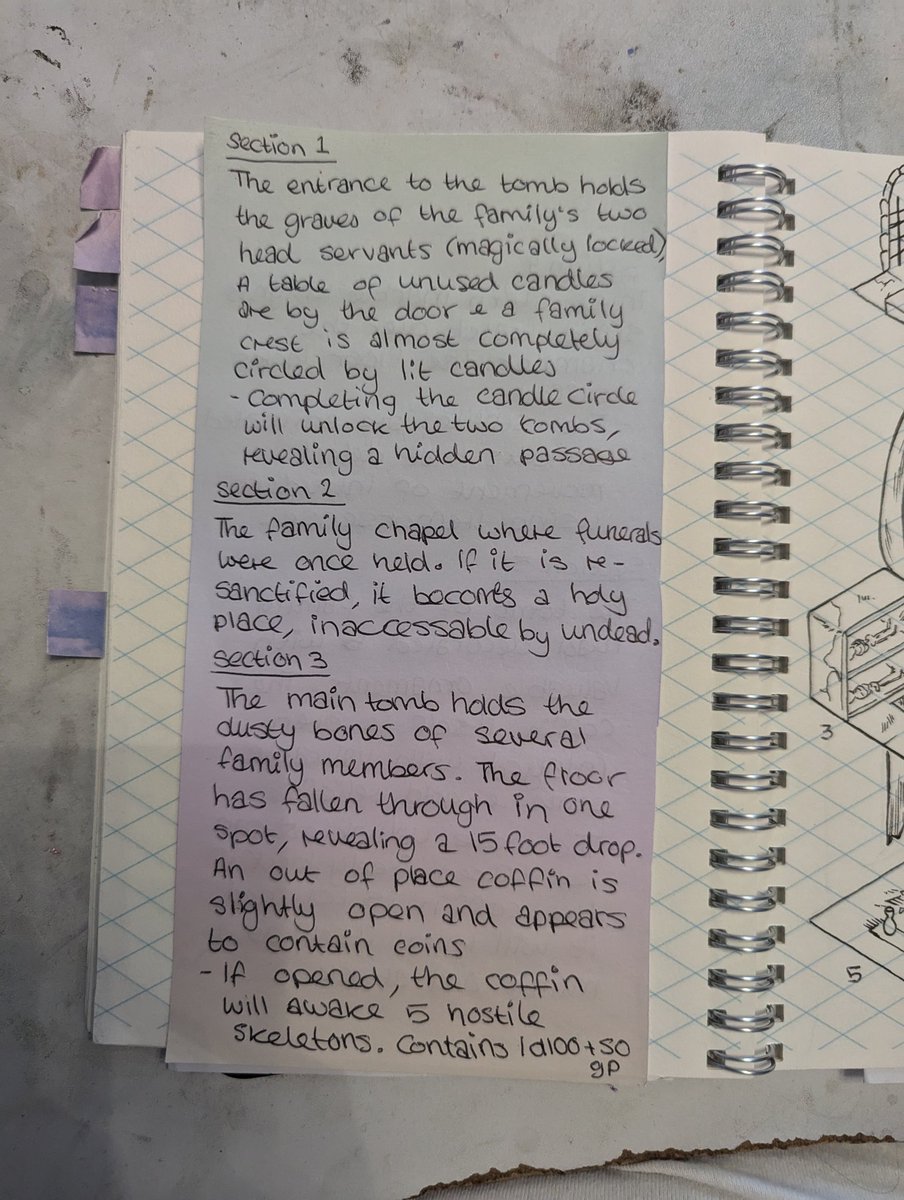 Section 1
The entrance to the tomb holds
the graves of the family's two
head servants (magically locked),
A table of unused candles
are by the door & a family
crest is almost completely
circled by lit candles
- Completing the candle circle
will unlock the two tombs,
revealing a hidden passage
Section 2
The family chapel where funerals
were once held. If it is re-
sanctified, it becomes a holy
place, inaccessable by undead.
Section 3
The main tomb holds the
dusty bones of several
family members. The floor
has fallen through in one
spot, revealing a 15 foot drop.
An out of place coffin is
slightly open and appears
to contain coins
- If opened, the coffin
will awake 5 hostile
skeletons. Contains 1d100+50
gp
3
5